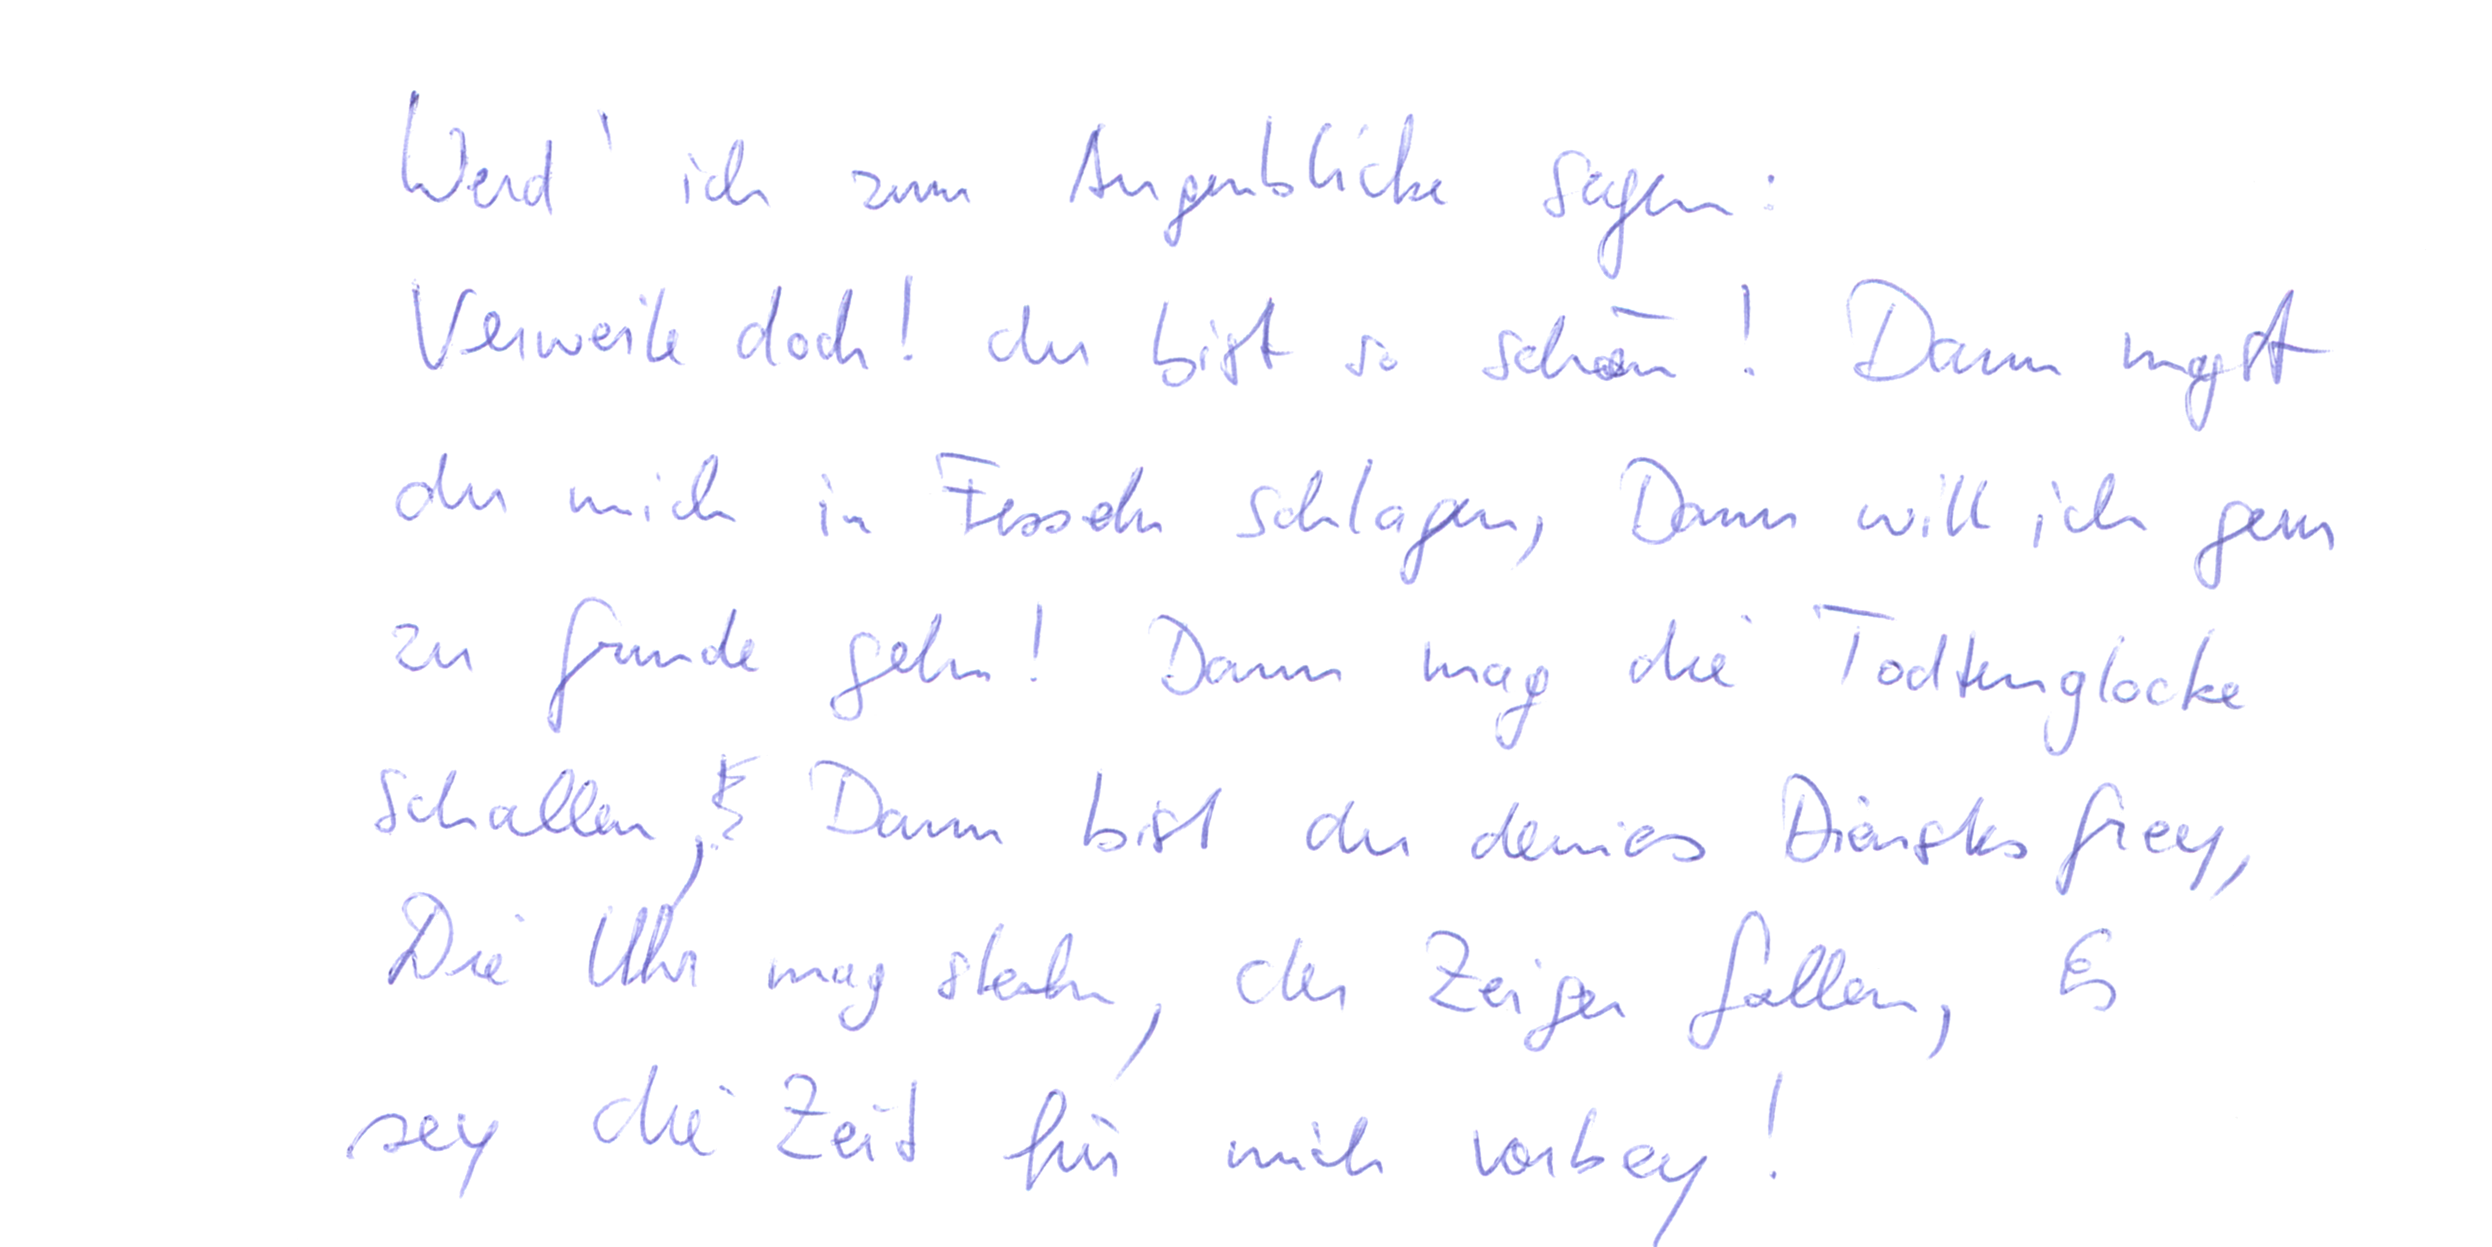 Werd' ich zum Augenblicke sagen:
Verweile doch! du bist so schön! Dann magst
du mich in Fesseln schlagen, Dann will ich gern
zu grunde gehn! Dann mag die Todtenglocke
schallen, Dann bist du deines Dienstes frey,
Die Uhr mag stehn, der Zeiger fallen, Es
sey die Zeit für mich vorbey!